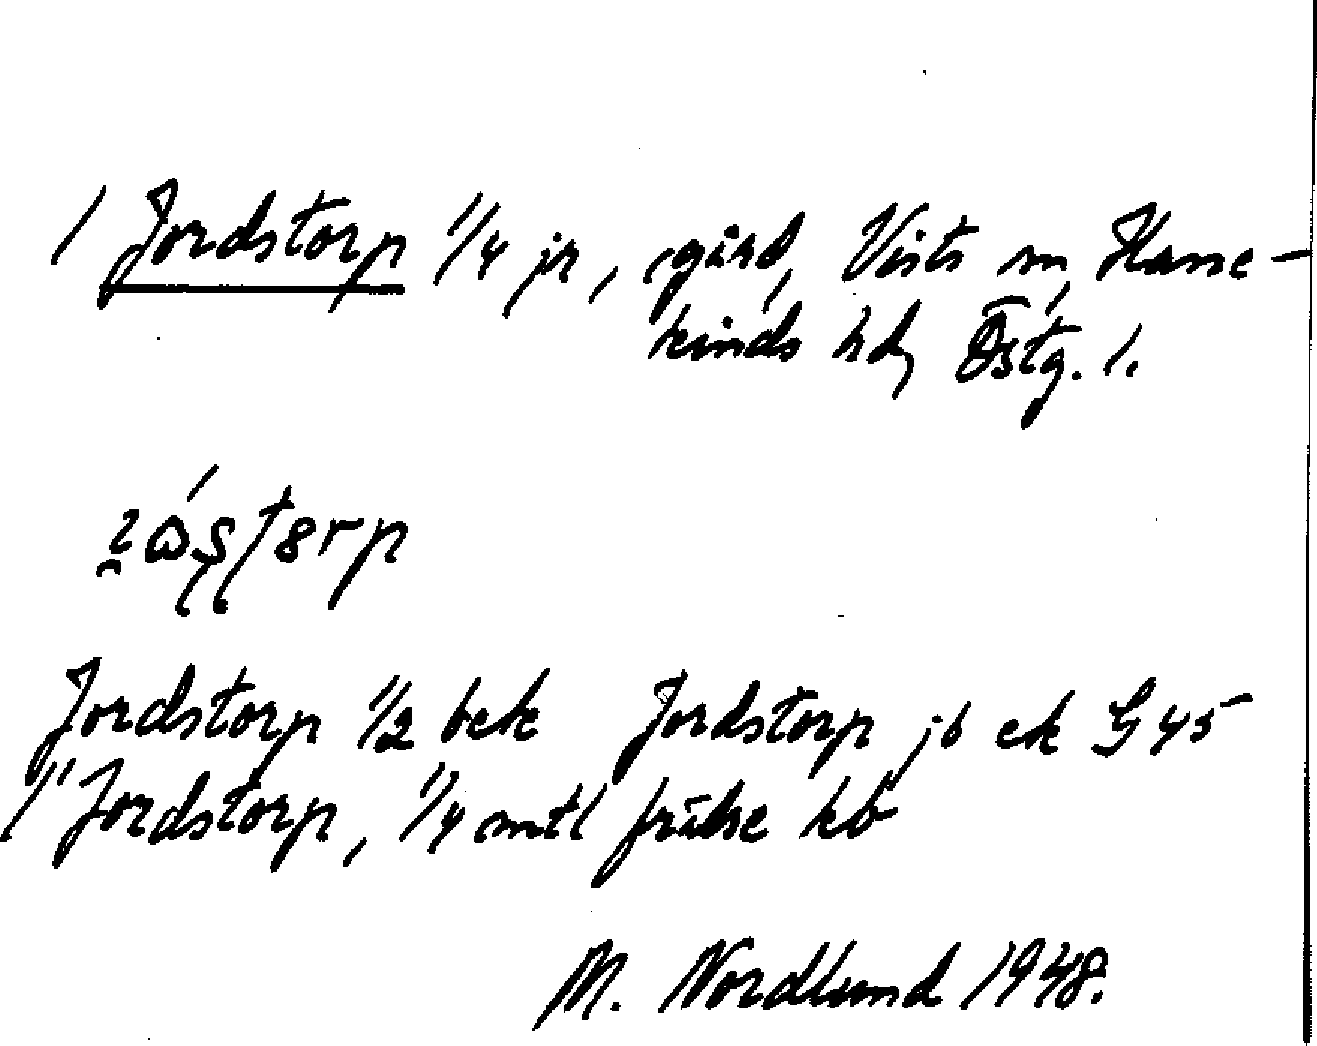 1 Jordstorp 1/4 fr, gård, Vists sn, Hane-
kinds hd, Östg. l.
Jordstorp 1/2 bek Jordstorp jb ek G 45
Jordstorp, 1/4 mtl frälse kb
M. Nordlund 1948.